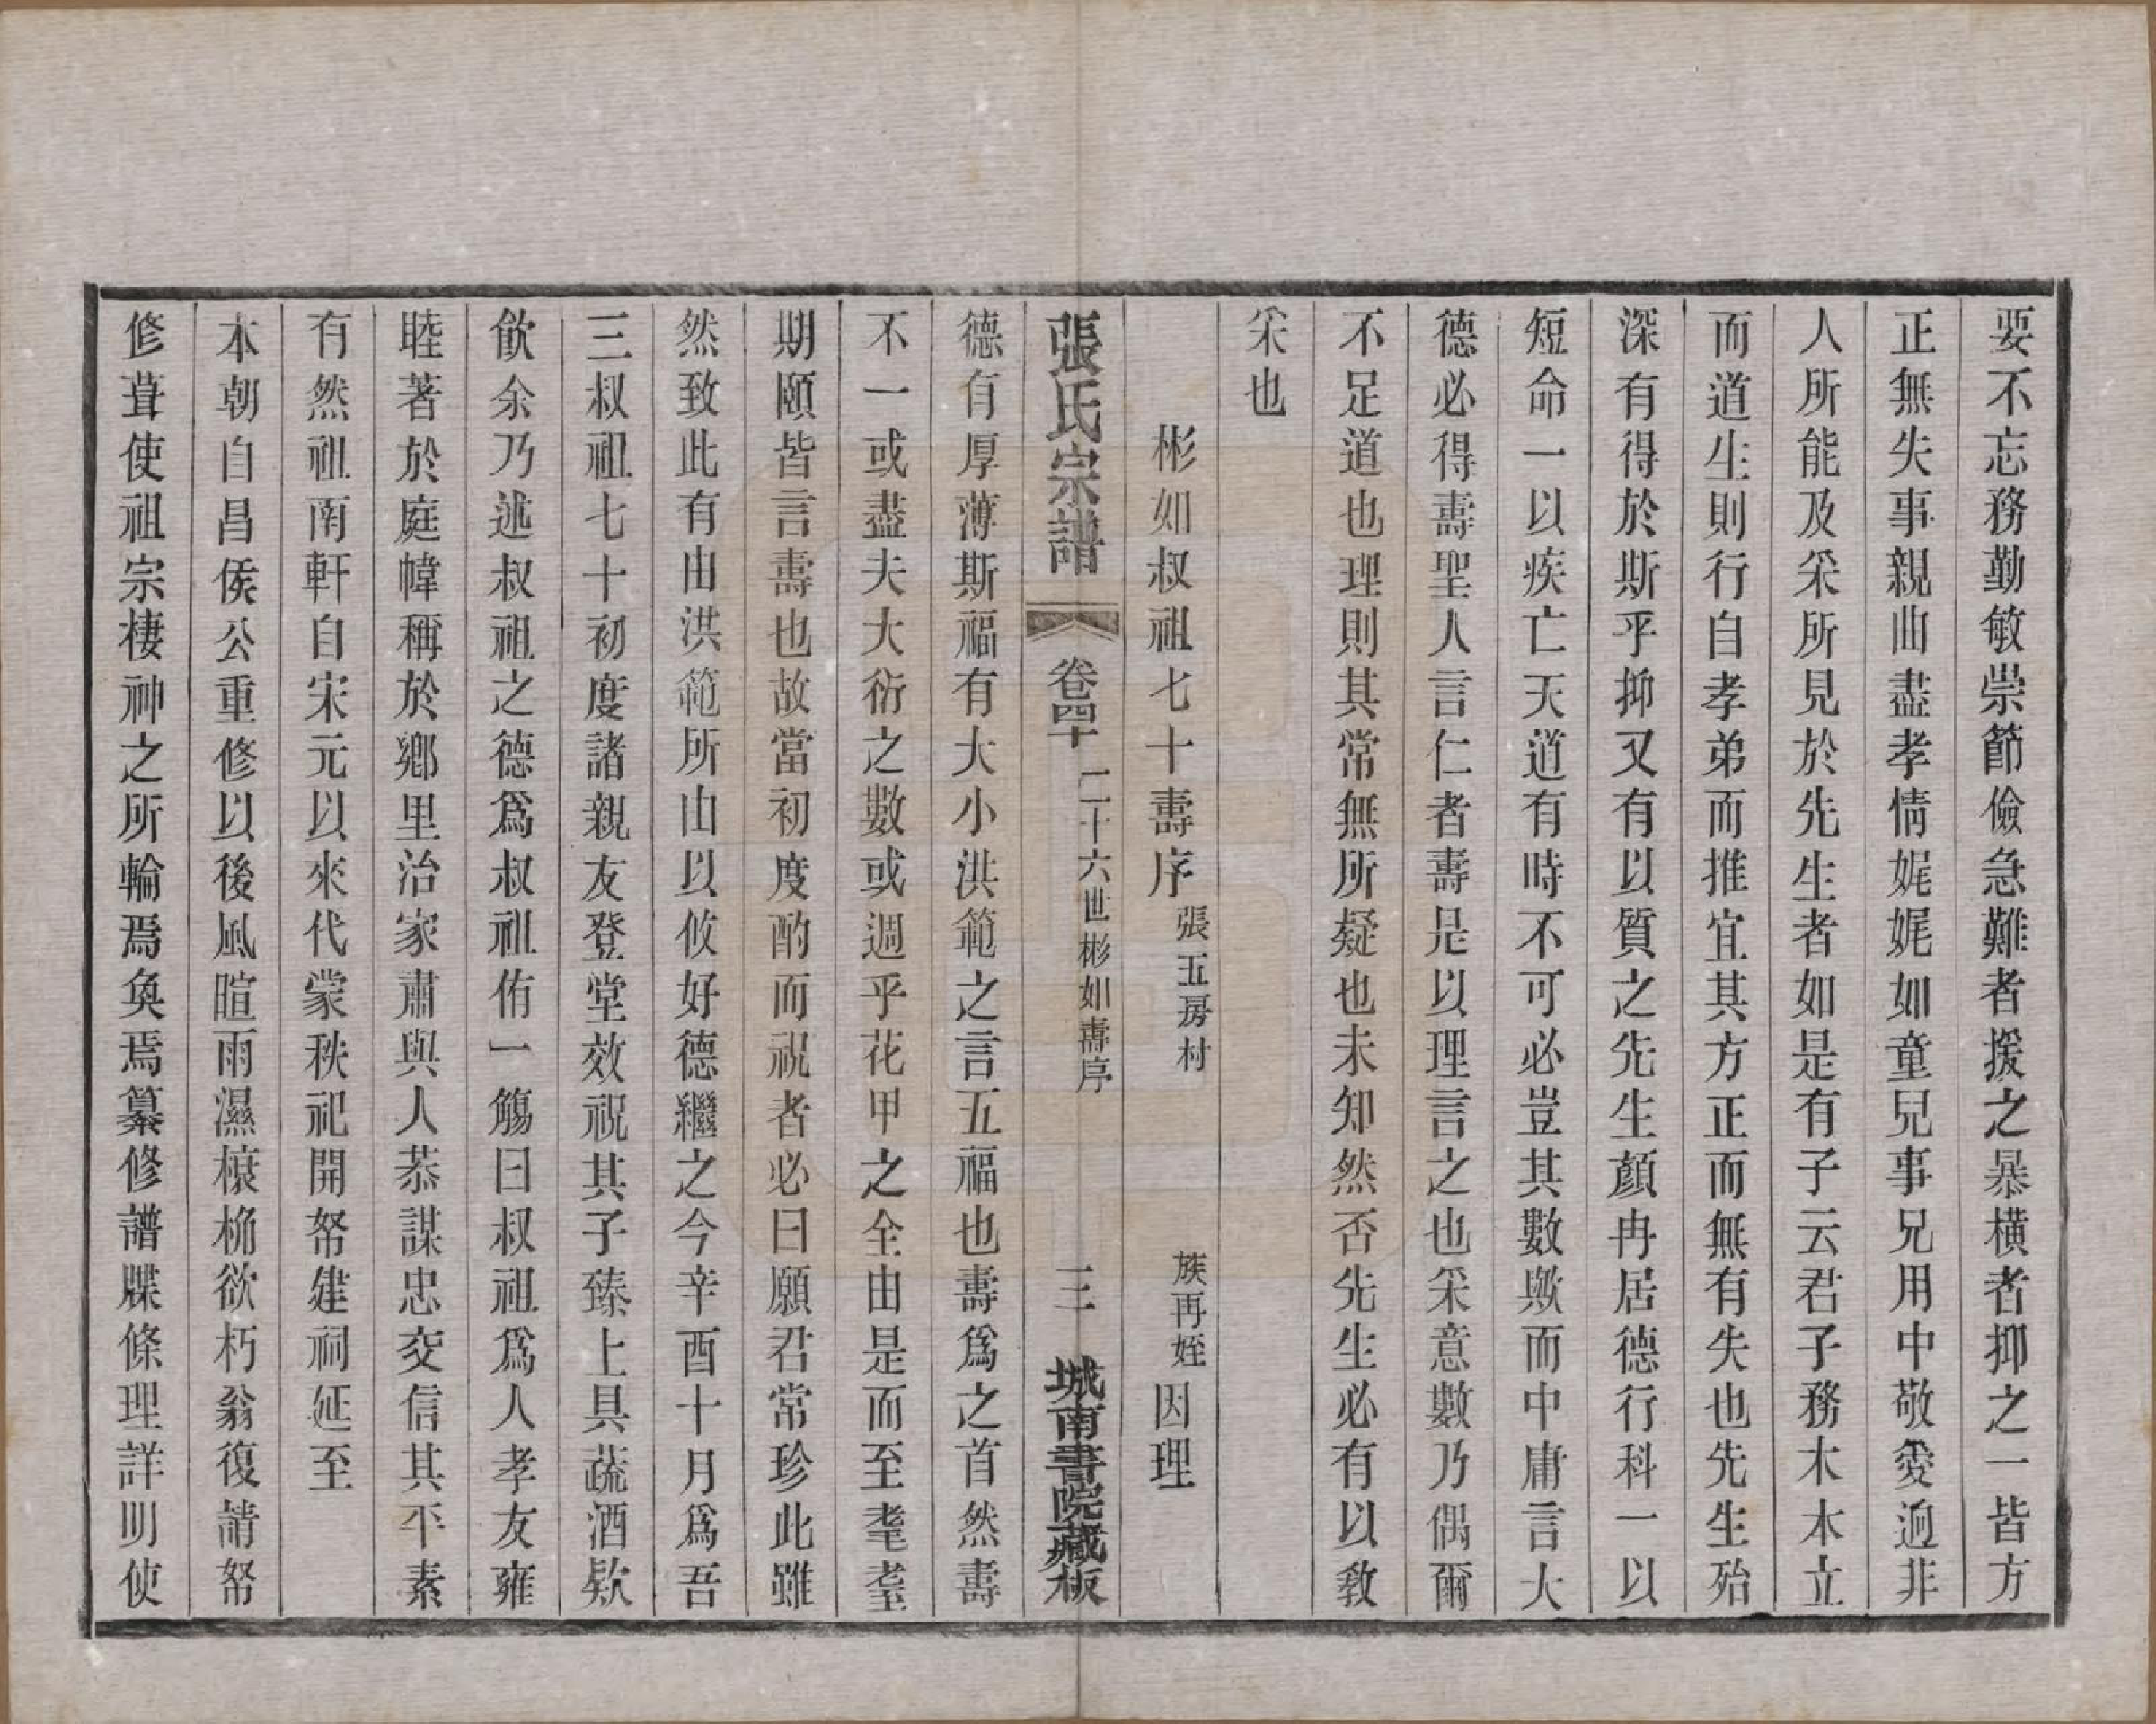 要不忘務勤敏崇節儉急難者援之暴橫者抑之一皆方
正無失事親曲盡孝情娓娓如童兒事兄用中敬愛逈非
人所能及采所見於先生者如是有子云君子務木木立
而道生則行自孝弟而推宜其方正而無有失也先生殆
深有得於斯乎抑又有以質之先生顏冉居德行科一以
短命一以疾亡天道有時不可必豈其數歟而中庸言大
德必得壽聖人言仁者壽是以理言之也采意數乃偶爾
不足道也理則其常無所疑也未知然否先生必有以敎
采也
彬如叔祖七十壽序 張五房村 族再姪因理
張氏宗譜 卷四十 二十六世彬如壽序 三 城南書院藏板
德有厚薄斯福有大小洪範之言五福也壽爲之首然壽
不一或盡夫大衍之數或週乎花甲之全由是而至耄耋
期頤皆言壽也故當初度酌而祝者必曰願君常珍此雖
然致此有由洪範所由以攸好德繼之今辛酉十月爲吾
三叔祖七十初度諸親友登堂效祝其子臻上具蔬酒欵
飲余乃述叔祖之德爲叔祖侑一觴曰叔祖爲人孝友雍
睦著於庭幃稱於鄉里治家肅與人恭謀忠交信其平素
有然祖南軒自宋元以來代蒙秩祀開帑建祠延至
本朝自昌侯公重修以後風暄雨濕榱桷欲朽翁復請帑
修葺使祖宗棲神之所輪焉奐焉纂修譜牒條理詳明使